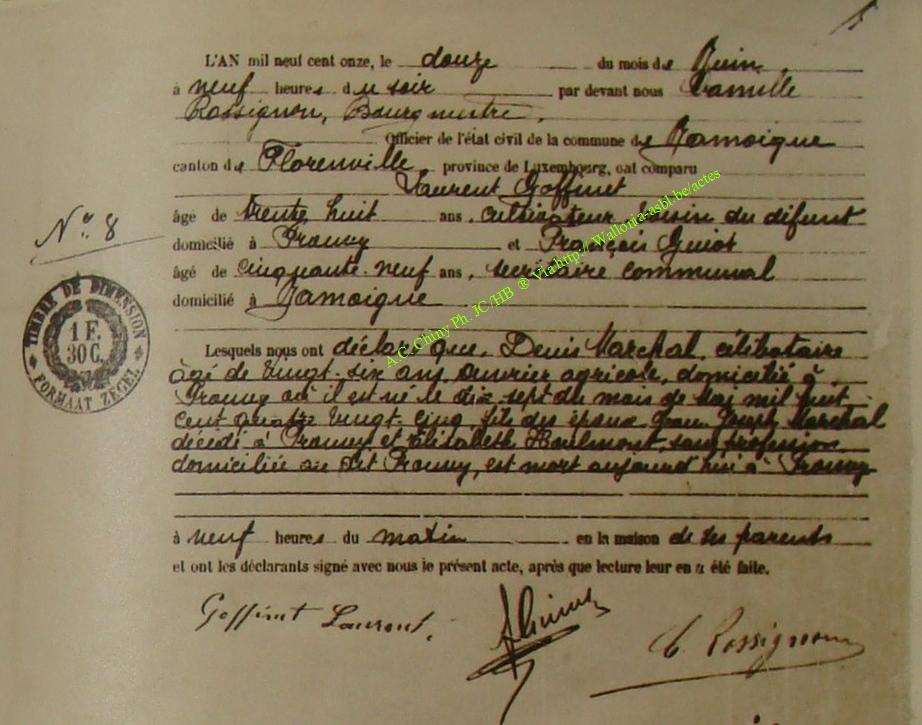 L'AN mil neuf cent onze, le douze du mois de Juin
à neuf heures du soir par devant nous Camille
Rossignon, Bourgmestre,
Officier de l'état civil de la commune de Jamoigne
canton de Florenville province de Luxembourg, ont comparu
Laurent Goffinet
âgé de trente huit ans, cultivateur, voisin du défunt
domicilié à Prouvy et François Guiot
âgé de cinquante-neuf ans, secrétaire communal
domicilié à Jamoigne
Nº 8
TIMBRE DE DIMENSION
1 F.
30 C.
FORMAAT ZEGEL
A.C. Chiny Ph. JC/HB ® Via http://Wallonia-asbl.be/actes
Lesquels nous ont déclaré que, Denis Marchal, célibataire
âgé de vingt-six ans, ouvrier agricole, domicilié à
Prouvy où il est né le dix sept du mois de Mai mil huit
cent quatre vingt-cinq, fils des époux Jean Joseph Marchal
décédé à Prouvy et Elisabeth Baulmont, sans profession
domiciliée au dit Prouvy, est mort aujourd'hui à Prouvy
à neuf heures du matin en la maison de ses parents
et ont les déclarants signé avec nous le présent acte, après que lecture leur en a été faite.
Goffinet Laurent.
C. Rossignon